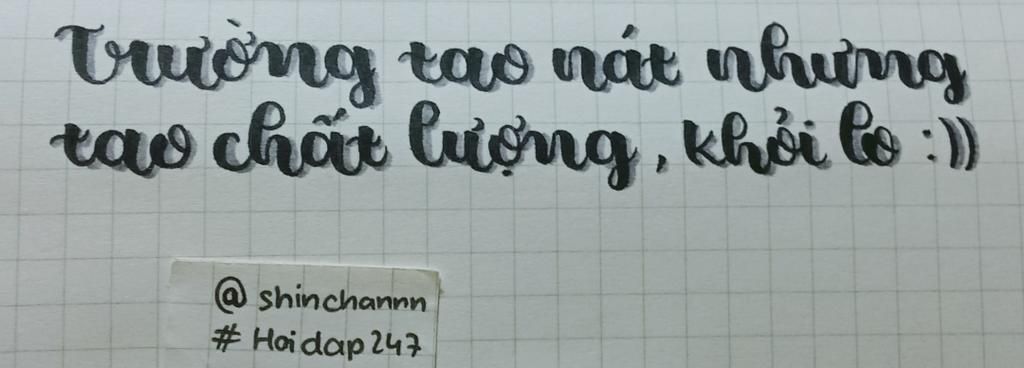 Trường tao nát nhưng
tao chất lượng, khỏi lo :))
@ shinchannn
# Hoidap247